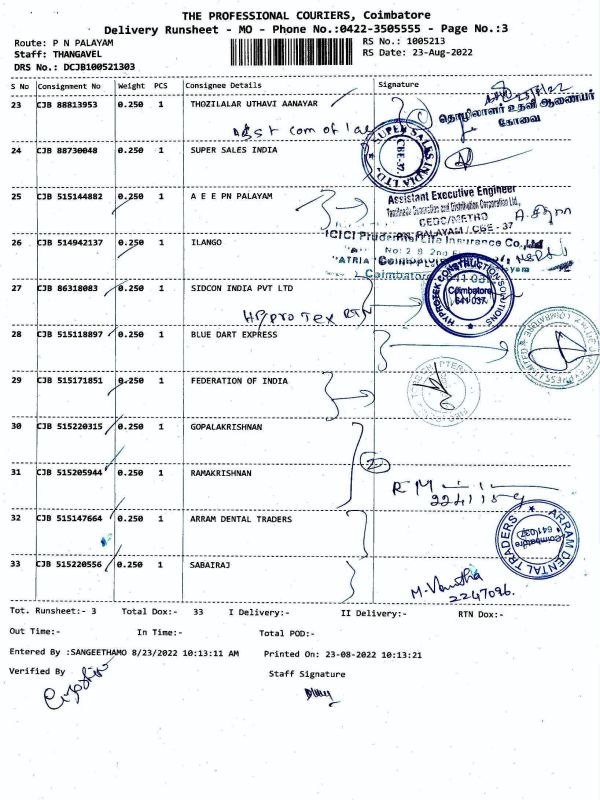 THE PROFESSIONAL COURIERS, Coimbatore
Delivery Runsheet - MO - Phone No.:0422-3505555 - Page No.:3
Route: P N PALAYAM RS No.: 1005213
Staff: THANGAVEL RS Date: 23-Aug-2022
DRS No.: DCJB100521303
S No Consignment No Weight PCS Consignee Details Signature
23 CJB 88813953 0.250 1 THOZILALAR UTHAVI AANAYAR
தொழிலாளர் உதவி ஆணையர்
கோவை
Asst com of
24 CJB 88730048 0.250 1 SUPER SALES INDIA
SUPER SALES INDIA LTD.
CBE-37.
25 CJB 515144882 0.250 1 A E E PN PALAYAM
Assistant Executive Engineer
Tamilnadu Generation and Distribution Corporation Ltd.,
CEDC/METRO
PN PALAYAM / CBE - 37
26 CJB 514942137 0.250 1 ILANGO
ICICI Prudential Life Insurance Co., Ltd
Coimbatore
27 CJB 86318083 1 SIDCON INDIA PVT LTD
0.250
HYPROTEX RTN
HYPROTEK CONSTRUCTION SOLUTIONS
Coimbatore
641 037.
28 CJB 515118897 0.250 1 BLUE DART EXPRESS
29 CJB 515171851 0.250 1 FEDERATION OF INDIA
30 CJB 515220315 0.250 1 GOPALAKRISHNAN
31 CJB 515205944 0.250 1 RAMAKRISHNAN
2
R M
32 CJB 515147664 0.250 1 ARRAM DENTAL TRADERS
ARRAM DENTAL TRADERS
Coimbatore
641 037
33 CJB 515220556 0.250 1 SABAIRAJ
M. Vanitha
2247096.
Tot. Runsheet:- 3 Total Dox:- 33 I Delivery:- II Delivery:- RTN Dox:-
Out Time:- In Time:- Total POD:-
Entered By :SANGEETHAMO 8/23/2022 10:13:11 AM Printed On: 23-08-2022 10:13:21
Verified By Staff Signature